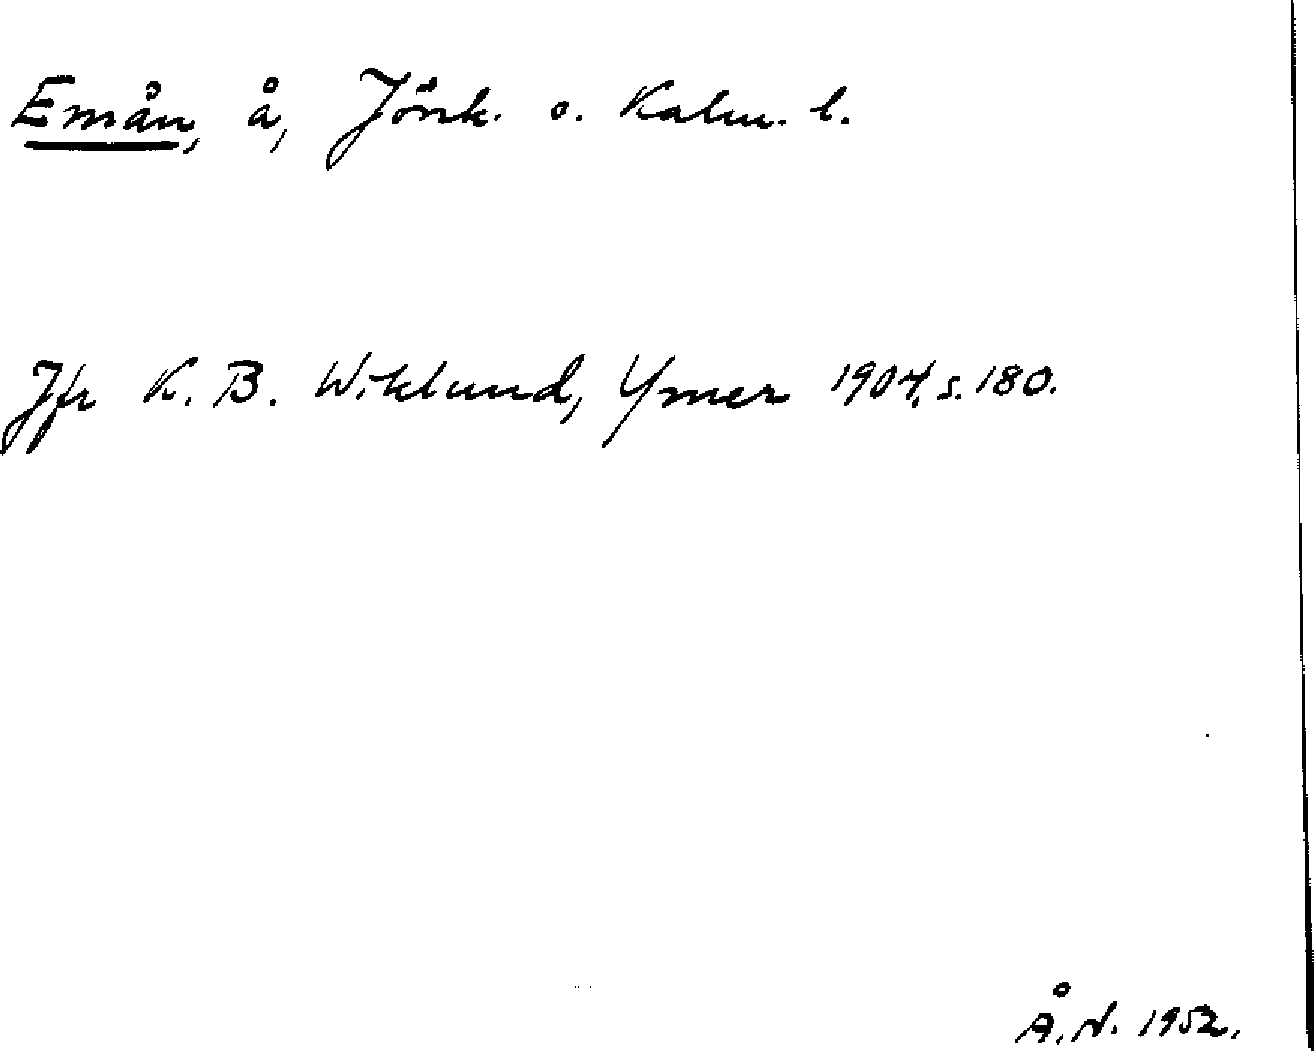 Emån, å, Jönk. o. Kalm. l.
Jfr K. B. Wiklund, Ymer 1904, s. 180.
Å. N. 1952.